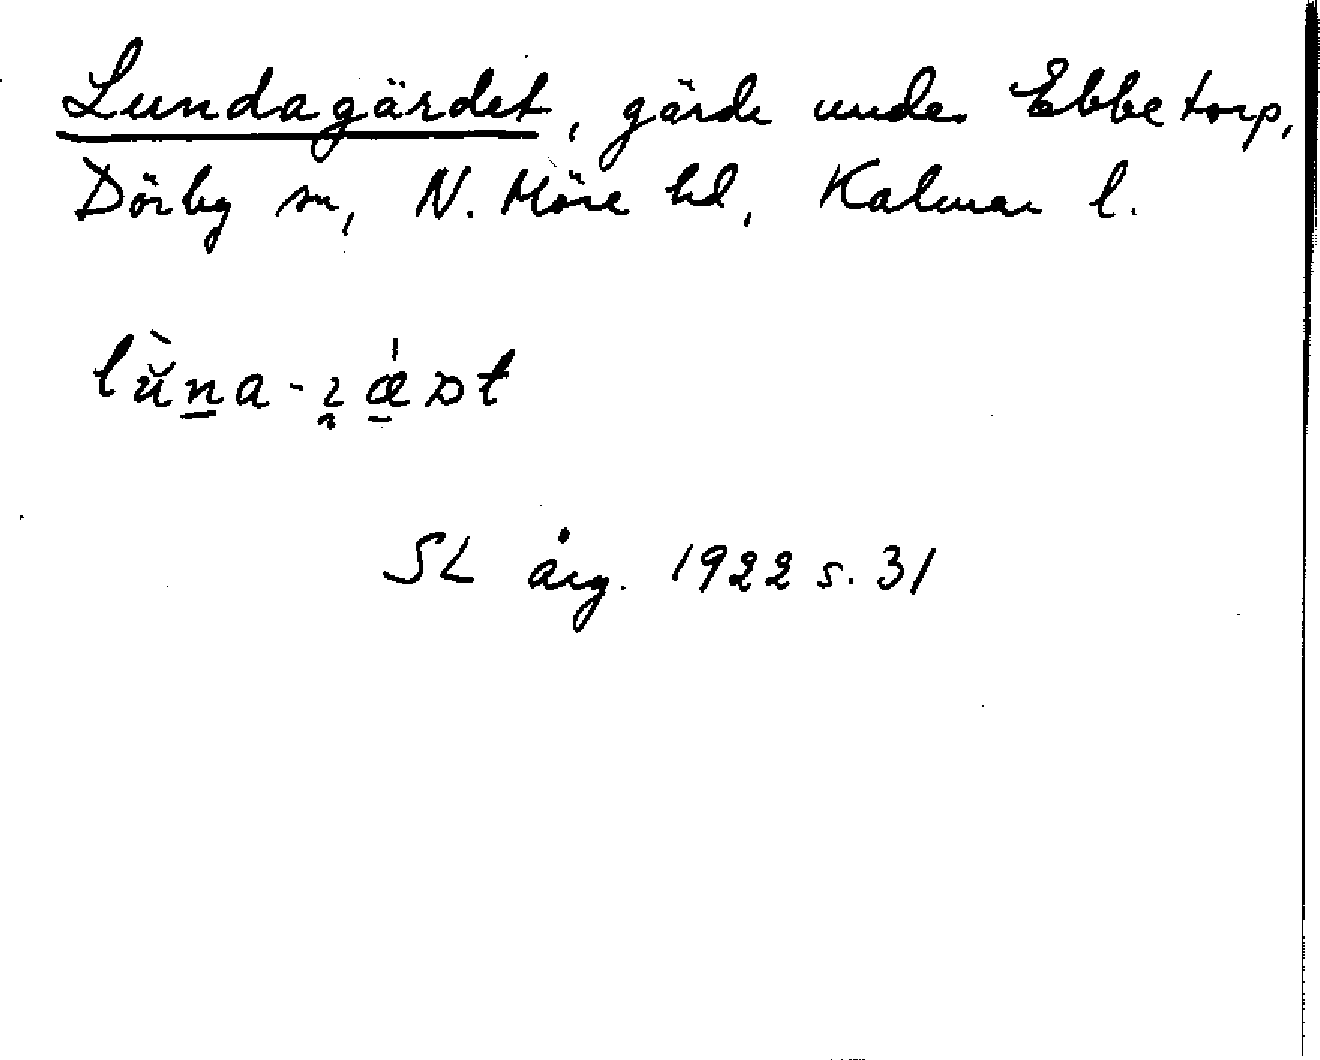 Lundagärdet, gärde under Ebbetorp,
Dörby sn, N. Möre hd, Kalmar l.
SL årg. 1922 s. 31